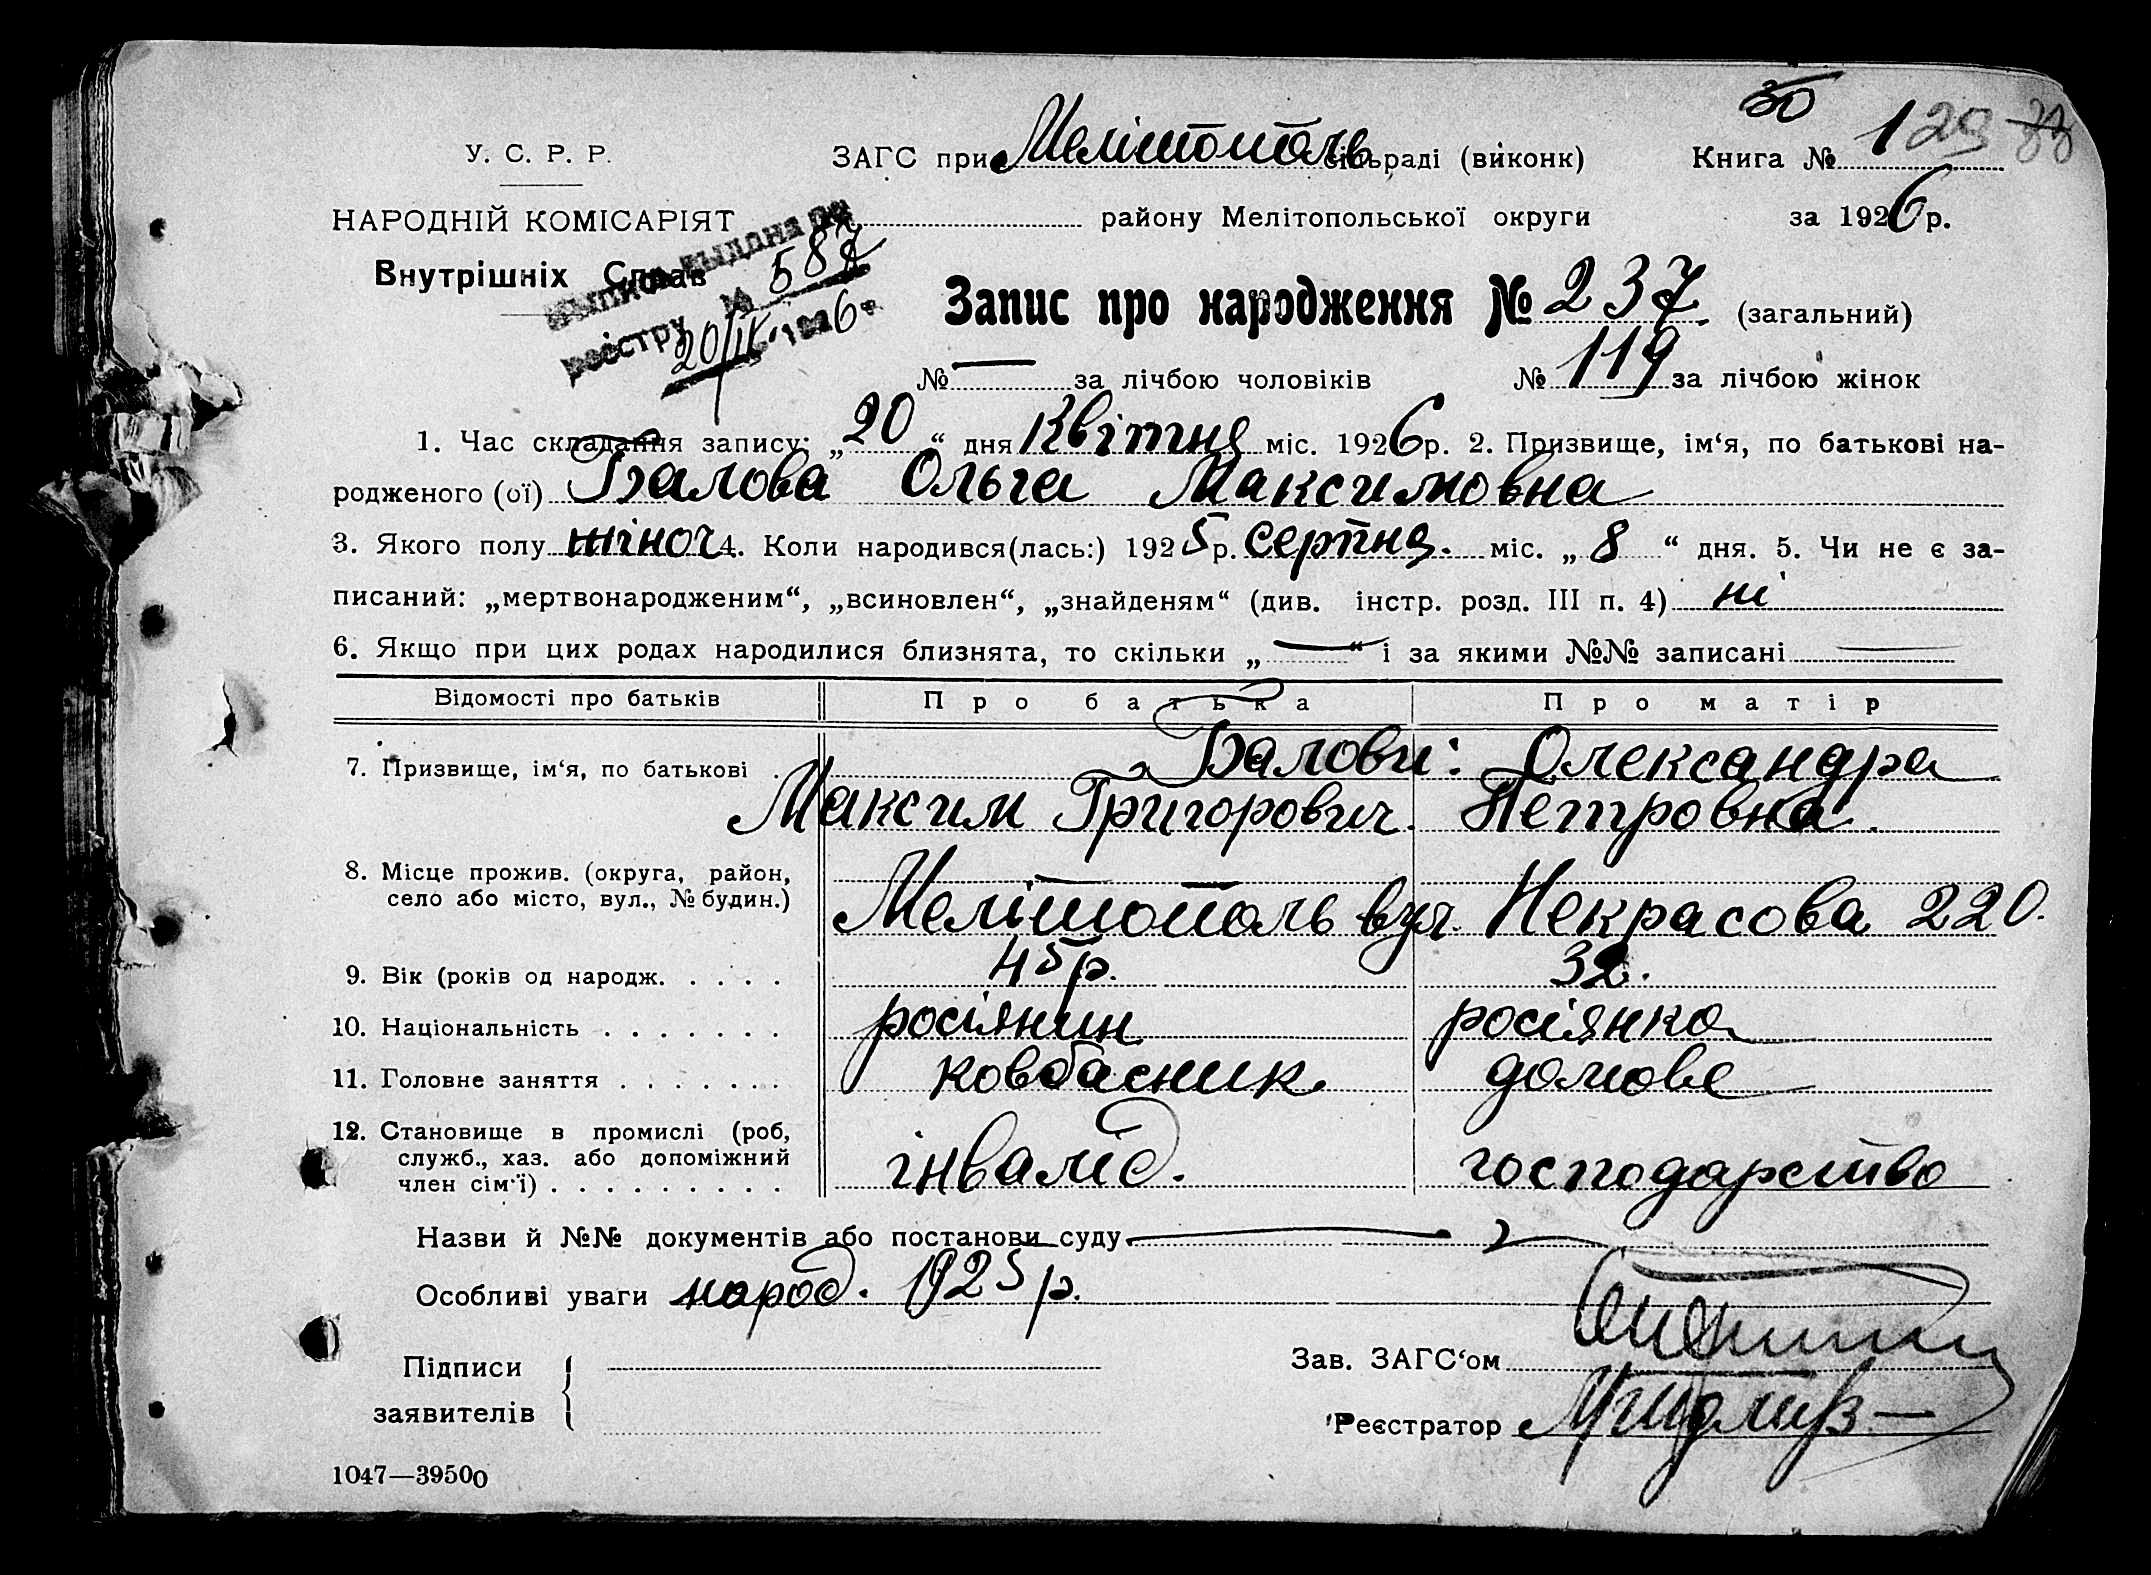 30
У. С. Р. Р. ЗАГС при Мелітополь сільраді (виконк) Книга № 1 29
НАРОДНІЙ КОМІСАРІЯТ району Мелітопольської округи за 1926 р.
Внутрішніх Справ
выпись выдана по
реестру № 587
20/IV 1926 г.
Запис про народження № 237. (загальний)
№ — за лічбою чоловіків № 119 за лічбою жінок
1. Час складання запису: „20“ дня Квітня міс. 1926 р. 2. Призвище, ім‘я, по батькові на-
родженого (ої) Балова Ольга Максимовна
3. Якого полу жіноч 4. Коли народився(лась:) 1925 р. серпня. міс. „8“ дня. 5. Чи не є за-
писаний: „мертвонародженим“, „всиновлен“, „знайденям“ (див. інстр. розд. III п. 4) ні
6. Якщо при цих родах народилися близнята, то скільки „—“ і за якими №№ записані —
Відомості про батьків Про батька Про матір
7. Призвище, ім‘я, по батькові . Балови: Олександра
Максим Григорович. Петровна.
8. Місце прожив. (округа, район,
село або місто, вул., № будин.) Мелітополь вул. Некрасова 220.
9. Вік (років од народж. . . . . 45 р. 32.
10. Національність . . . . . . . росіянин росіянка
11. Головне заняття . . . . . . . ковбасник домове
12. Становище в промислі (роб,
служб., хаз. або допоміжний
член сім‘ї) . . . . . . . . . інвалід. господарство
Назви й №№ документів або постанови суду —
Особливі уваги народ. 1925 р.
Підписи
заявителів
Зав. ЗАГС‘ом
Реєстратор
1047—39500